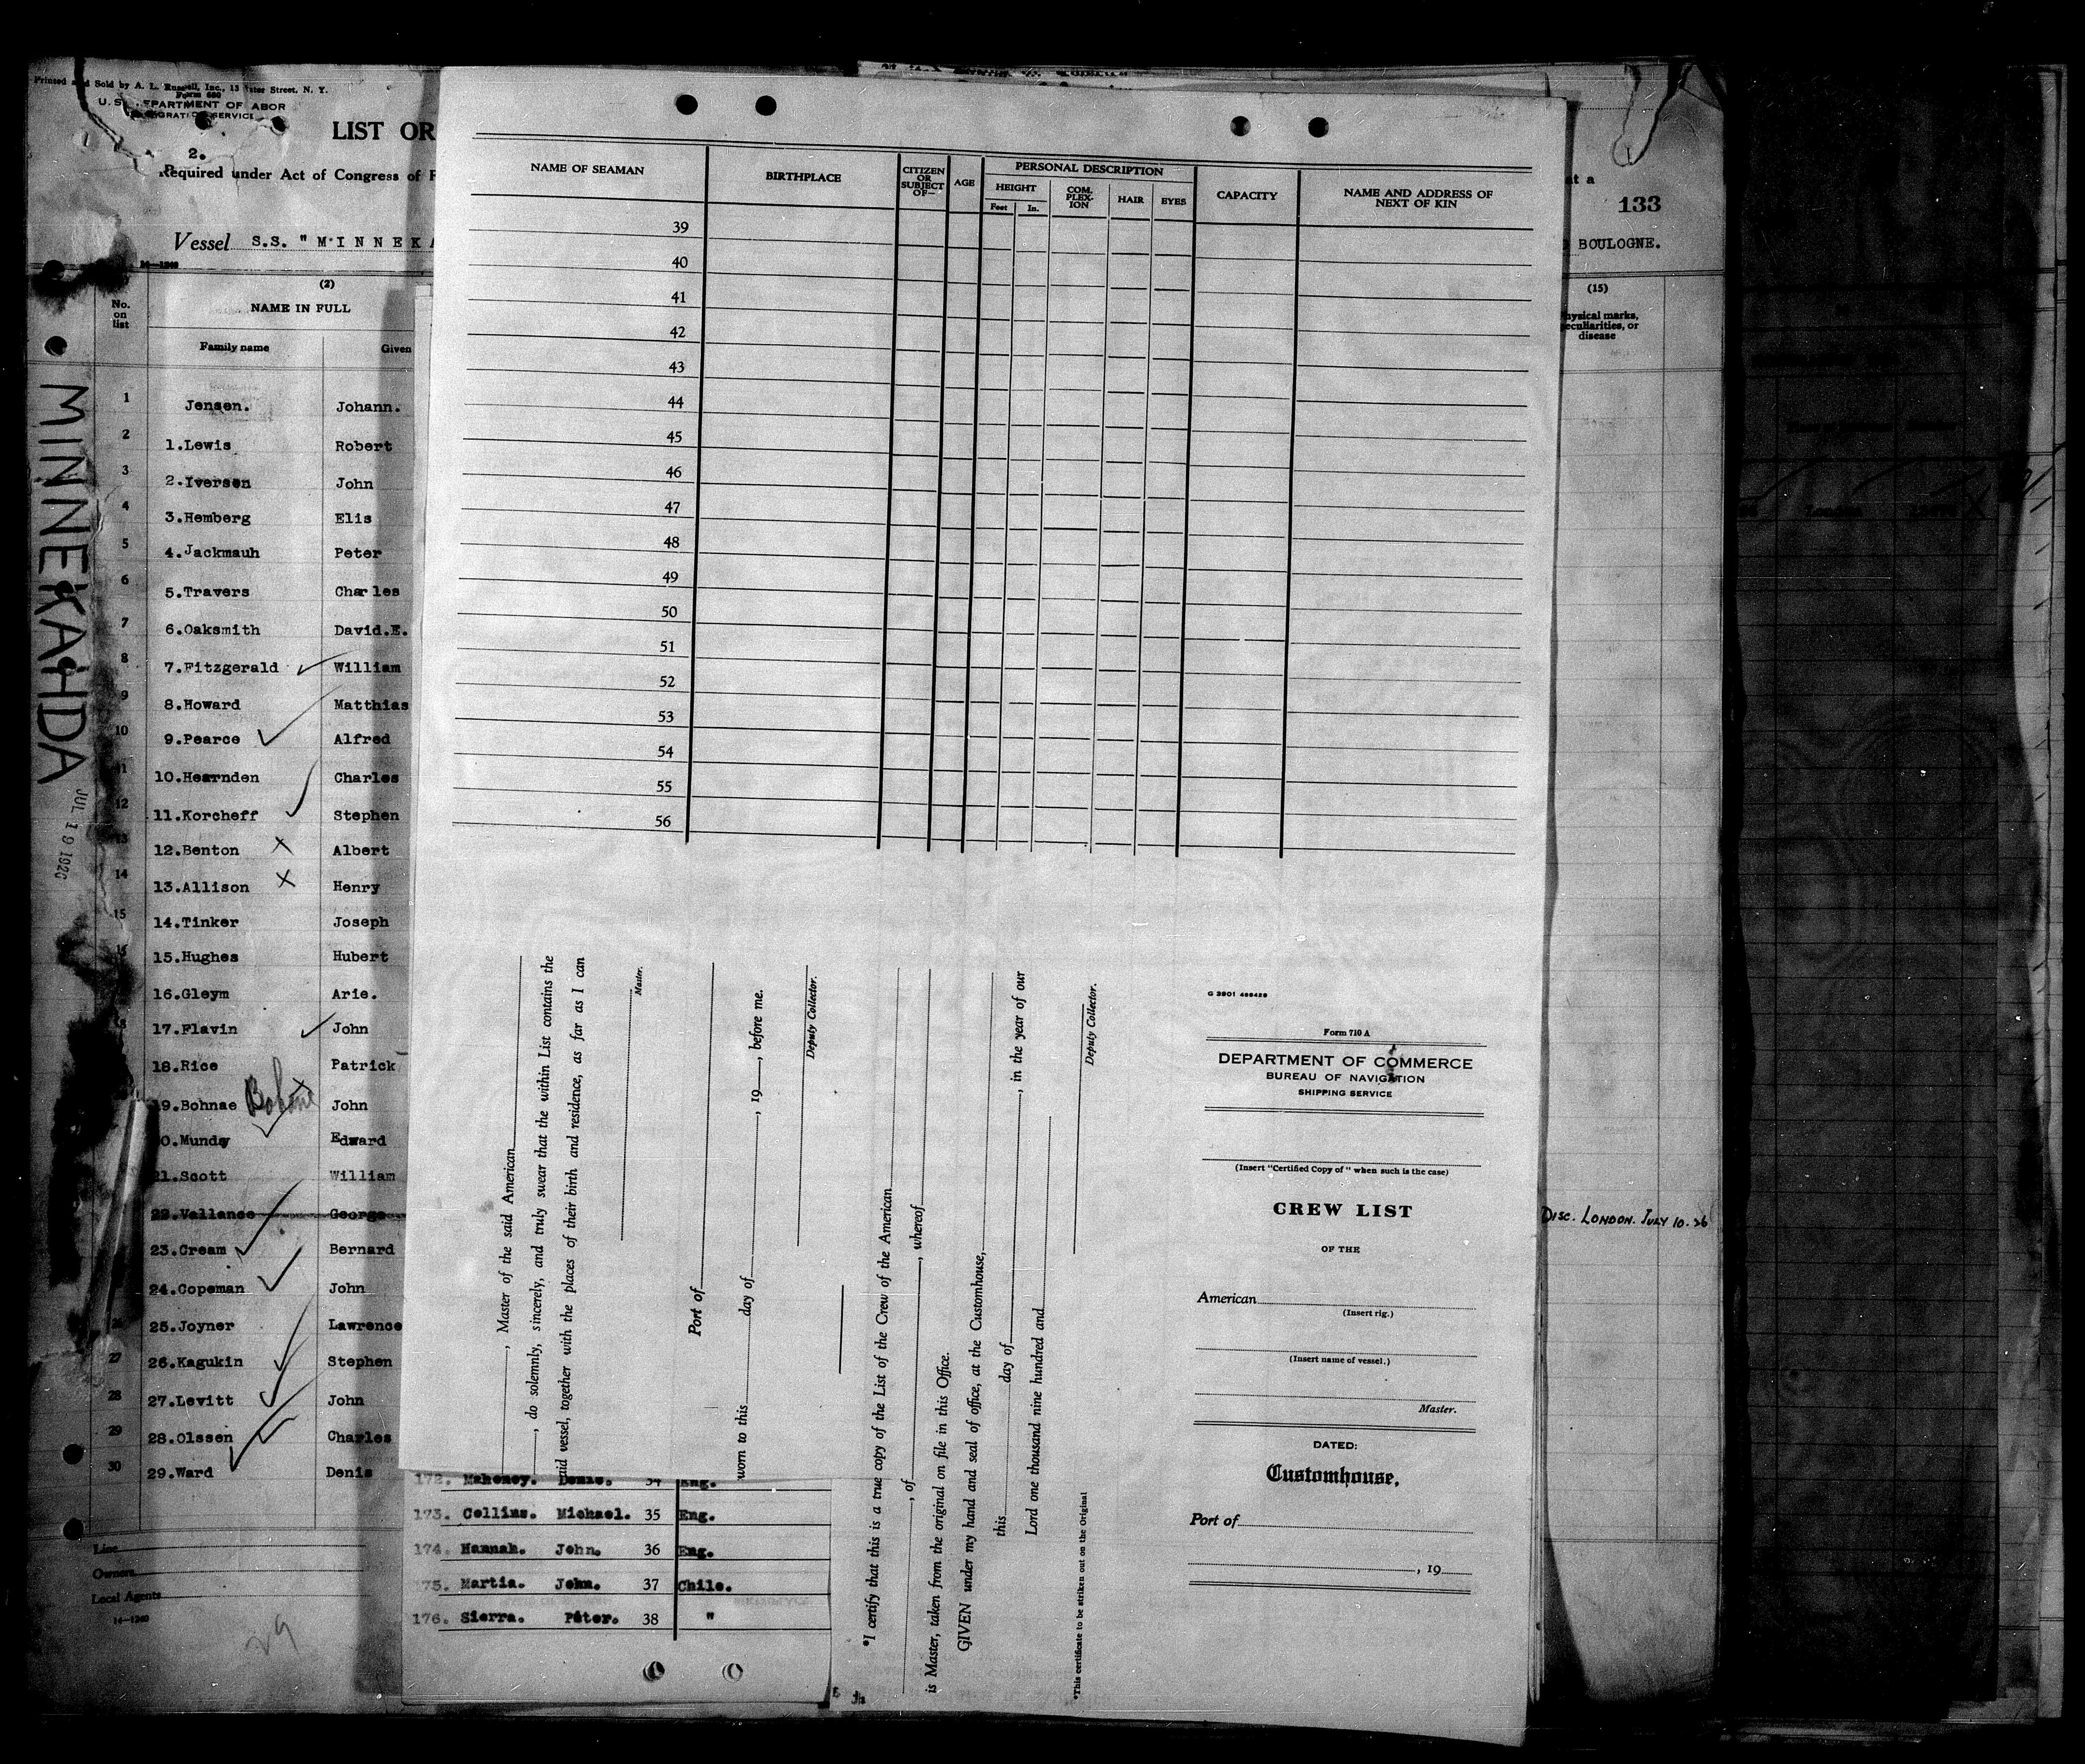 Printed and Sold by A. L. Russell, Inc., 13 Water Street, N. Y.
Form 680
U. S. DEPARTMENT OF LABOR
IMMIGRATION SERVICE
LIST OR
2.
Required under Act of Congress of F
Vessel S.S. "MINNEKA
14—1240
133
at a
BOULOGNE.
(2)
No. on list
NAME IN FULL
Family name Given
(15)
Physical marks, peculiarities, or disease
MINNEKAHDA
JUL 19 1926
1 Jensen. Johann.
2 1.Lewis Robert
3 2.Iversen John
4 3.Hemberg Elis
5 4.Jackmauh Peter
6 5.Travers Charles
7 6.Oaksmith David.E.
8 7.Fitzgerald William
9 8.Howard Matthias
10 9.Pearce Alfred
11 10.Hearnden Charles
12 11.Korcheff Stephen
13 12.Benton Albert
14 13.Allison Henry
15 14.Tinker Joseph
16 15.Hughes Hubert
16.Gleym Arie.
18 17.Flavin John
18.Rice Patrick
19.Bohnae John
0.Munday Edward
21.Scott William
22.Vallance George
23.Cream Bernard
24.Copeman John
26 25.Joyner Lawrence
27 26.Kagukin Stephen
28 27.Levitt John
29 28.Olssen Charles
30 29.Ward Denis
Disc. London. July 10.26
Line
Owners
Local Agents
14—1240
29
NAME OF SEAMAN
BIRTHPLACE
CITIZEN OR SUBJECT OF—
AGE
PERSONAL DESCRIPTION
HEIGHT
Feet In.
COMPLEXION
HAIR
EYES
CAPACITY
NAME AND ADDRESS OF NEXT OF KIN
39
40
41
42
43
44
45
46
47
48
49
50
51
52
53
54
55
56
, Master of the said American
, do solemnly, sincerely, and truly swear that the within List contains the
aid vessel, together with the places of their birth and residence, as far as I can
Master.
Port of
worn to this day of , 19 , before me.
Deputy Collector.
*I certify that this is a true copy of the List of the Crew of the American
, of , whereof
is Master, taken from the original on file in this Office.
GIVEN under my hand and seal of office, at the Customhouse,
this day of , in the year of our
Lord one thousand nine hundred and
Deputy Collector.
*This certificate to be striken out on the Original
G 3901 488428
Form 710 A
DEPARTMENT OF COMMERCE
BUREAU OF NAVIGATION
SHIPPING SERVICE
(Insert "Certified Copy of" when such is the case)
CREW LIST
OF THE
American
(Insert rig.)
(Insert name of vessel.)
Master.
DATED:
Customhouse,
Port of
, 19
172. Mahoney. 34 Eng.
173. Collins. Michael. 35 Eng.
174. Hannah. John. 36 Eng.
175. Martia. John. 37 Chile.
176. Sierra. Peter. 38 "